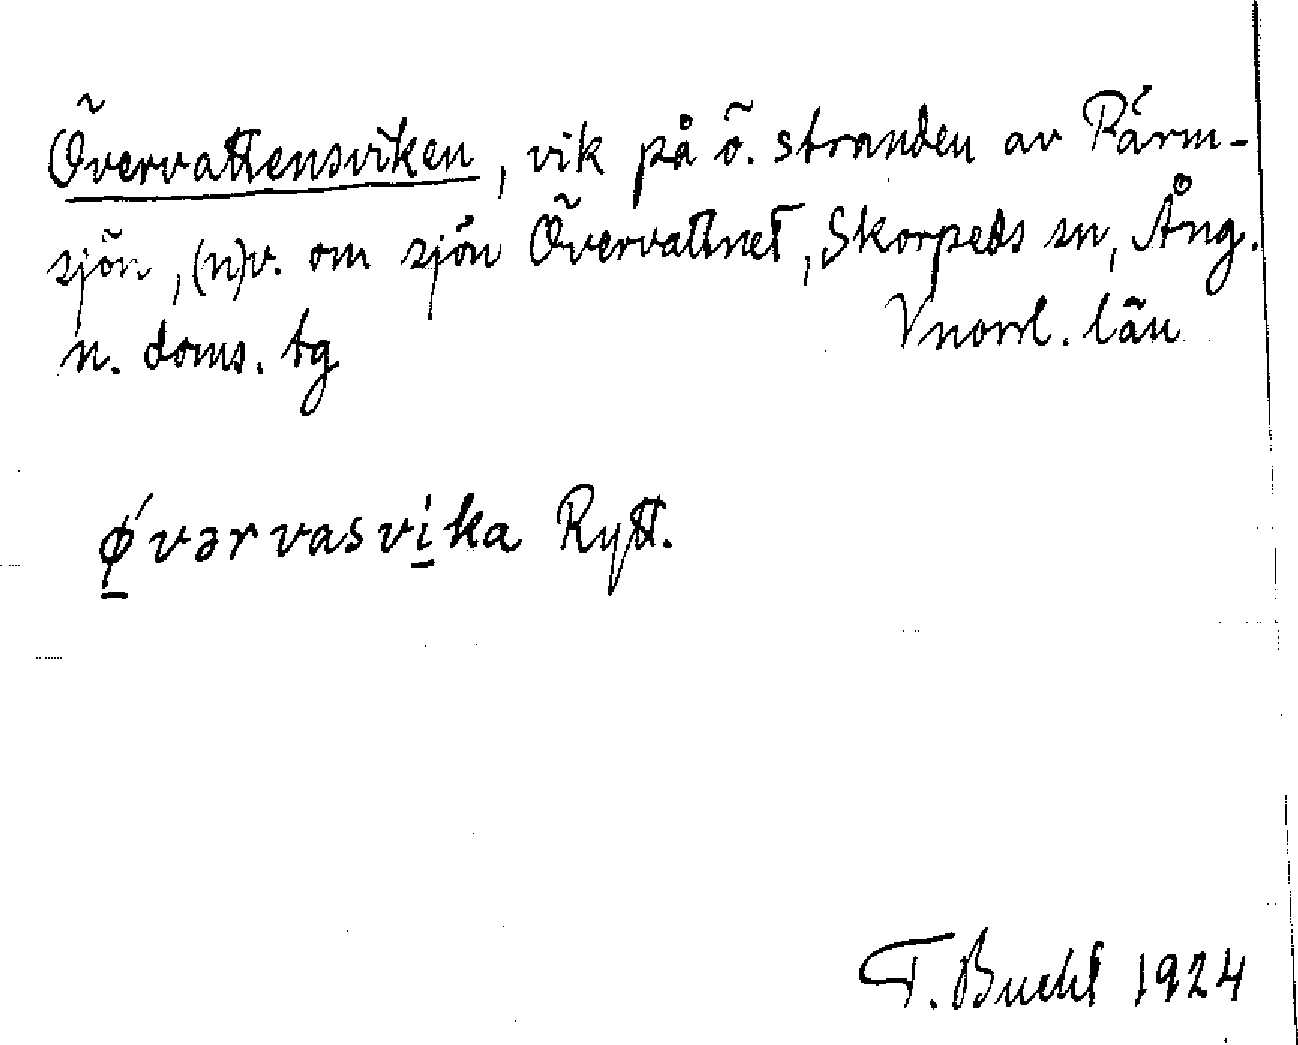 Övervattensviken, vik på ö. stranden av Pärm-
sjön, (n)v. om sjön Övervattnet, Skorpeds sn, Ång.
n. doms. tg Vnorrl. län
ǿvərvasvika Rytt.
T. Bucht 1924